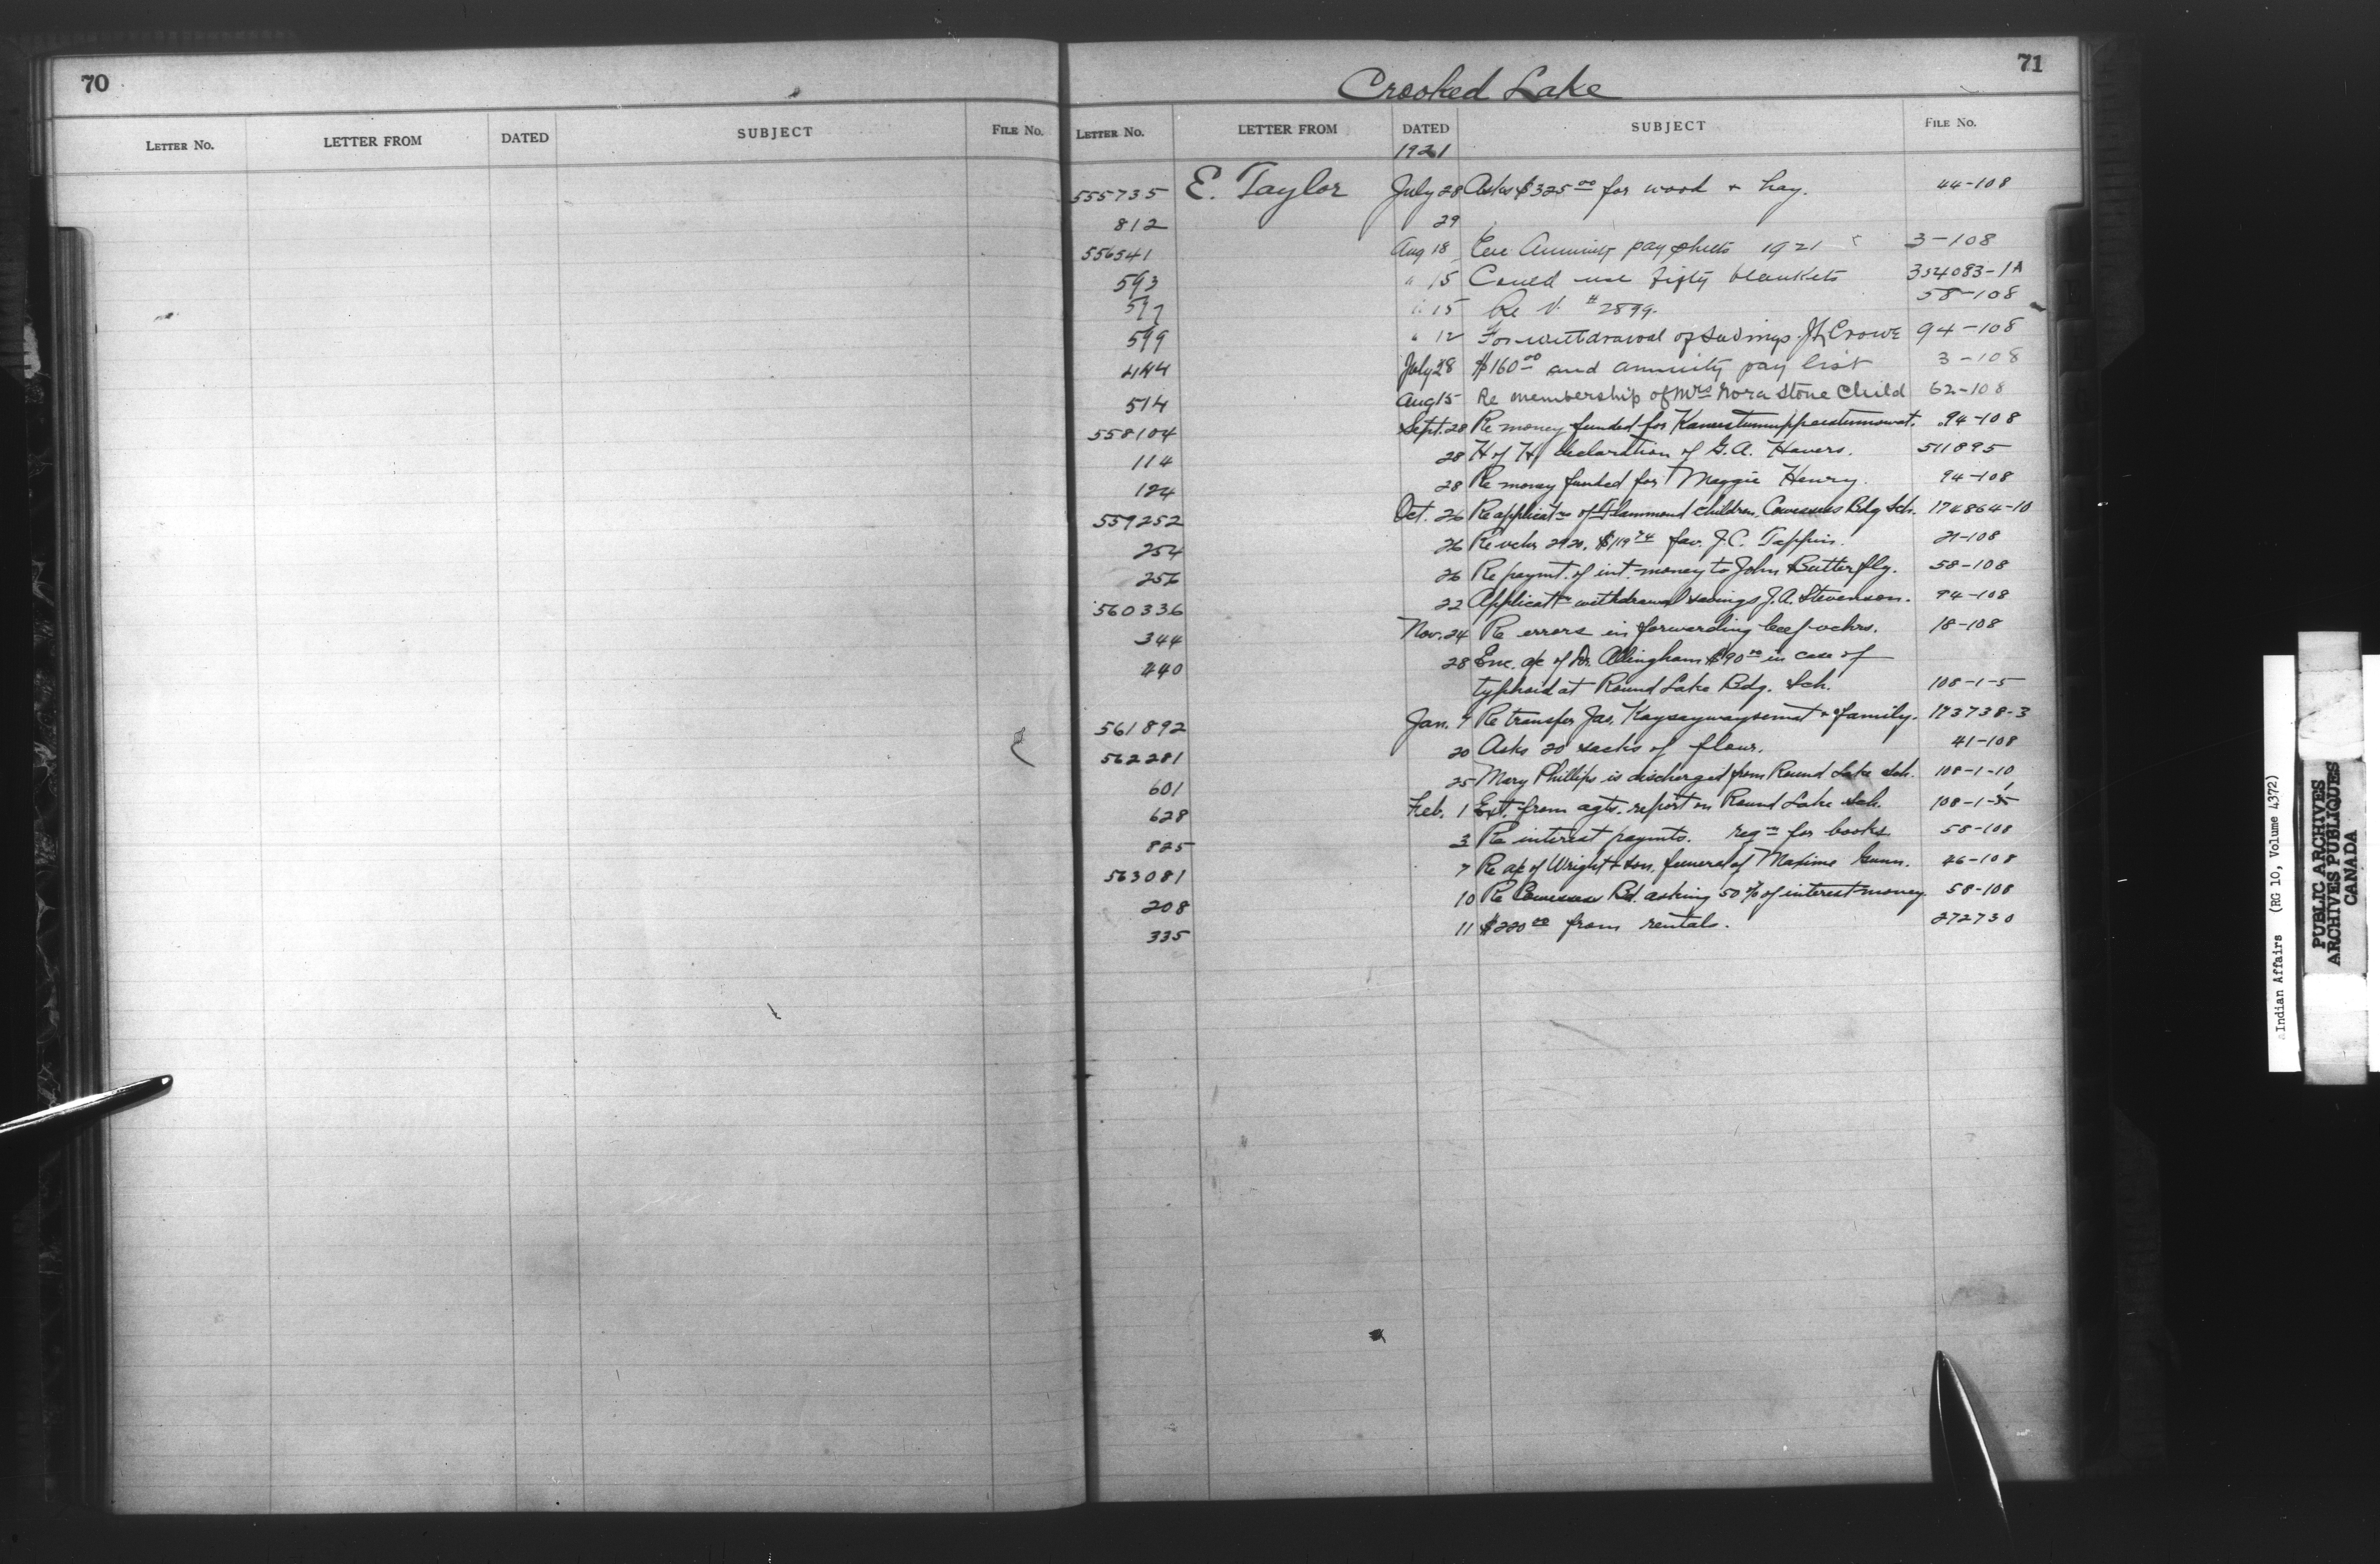 70
LETTER NO. LETTER FROM DATED SUBJECT FILE NO.
71
Crooked Lake
LETTER NO. LETTER FROM DATED SUBJECT FILE NO.
1921
555735 E. Taylor July 28 Asks $325.00 for wood + hay. 44-108
812 29
556541 Aug 18 Annuity pay sheets 1921 3-108
593 " 15 Could use fifty blankets 354083-1A
597 " 15 Re V. # 2899. 58-108
599 " 12 For withdrawal of savings. Crowe 94-108
444 July 28 $160.00 and annuity pay list 3-108
514 Aug 15 Re membership of Mrs Nora Stone Child 62-108
558104 Sept. 28 Re money funded for 94-108
114 28 H of H declaration of G.A. Havers. 511895
124 28 Re money funded for Maggie Henry. 94-108
559252 Oct. 26 Re applicatns of Flammend children, Cowesses Bdg Sch. 174864-10
254 26 Re vchr 2920, $119.74 fav. J.C. Tappin. 21-108
256 26 Re paymt. of int. money to John Butterfly. 58-108
560336 22 Applicatn withdrawal savings J.A. Stevenson. 94-108
344 Nov. 24 Re errors in forwarding beef vchrs. 18-108
440 28 Enc. a/c of Dr. Allingham $90.00 in case of
typhoid at Round Lake Bdg. Sch. 108-1-5
561892 Jan. 7 Re transfer Jas. Kaysaywaysemat + family. 173738-3
562281 20 Asks 20 sacks of flour. 41-108
601 25 Mary Phillips is discharged from Round Lake Sch. 108-1-10
628 Feb. 1 Ext. from agts. report on Round Lake Sch. 108-1-
825 3 Re interest paymts. reqn for books 58-108
563081 7 Re a/c of Wright + Son, funeral of Maxime Gunn. 26-108
208 10 Re Cowessess Bd. asking 50% of interest money. 58-108
335 11 $220.00 from rentals. 272730
Indian Affairs (RG 10, Volume 4372)
PUBLIC ARCHIVES
ARCHIVES PUBLIQUES
CANADA